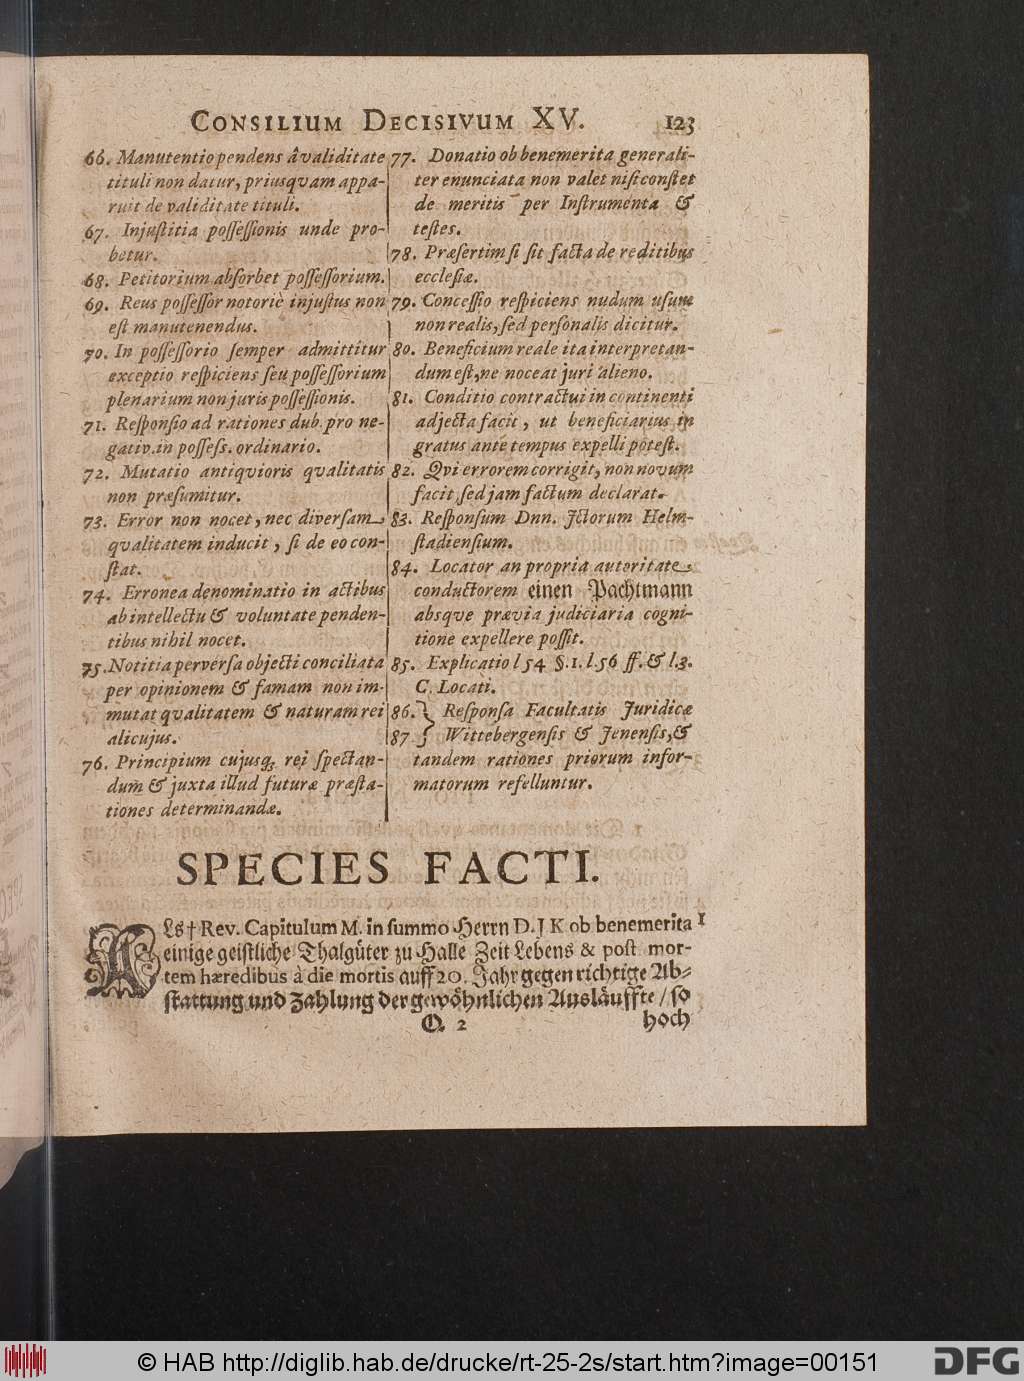 CONSILIUM DECISIVUM XV. 123
66. Manutentio pendens â validitate
tituli non datur, priusqvam appa-
ruit de validitate tituli.
67. Injuſtitia poſſeſſionis unde pro-
betur.
68. Petitorium abſorbet poſſeſſorium.
69. Reus poſſeſſor notoriè injuſtus non
eſt manutenendus.
70. In poſſeſſorio ſemper admittitur
exceptio reſpiciens ſeu poſſeſſorium
plenarium non juris poſſeſſionis.
71. Reſponſio ad rationes dub. pro ne-
gativ. in poſſeſs. ordinario.
72. Mutatio antiqvioris qvalitatis
non præſumitur.
73. Error non nocet, nec diverſam
qvalitatem inducit, ſi de eo con-
ſtat.
74. Erronea denominatio in actibus
ab intellectu & voluntate penden-
tibus nihil nocet.
75. Notitia perverſa objecti conciliata
per opinionem & famam non im-
mutat qvalitatem & naturam rei
alicujus.
76. Principium cujusq; rei ſpectan-
dum̃ & juxta illud futuræ præſta-
tiones determinandæ.
77. Donatio ob benemerita generali-
ter enunciata non valet niſi conſtet
de meritis per Inſtrumenta &
teſtes.
78. Præſertim ſi ſit facta de reditibus
eccleſiæ.
79. Conceſſio reſpiciens nudum uſum
non realis, ſed perſonalis dicitur.
80. Beneficium reale ita interpretan-
dum eſt, ne noceat juri alieno.
81. Conditio contractui in continenti
adjecta facit, ut beneficiarius in
gratus ante tempus expelli poteſt.
82. Qvi errorem corrigit, non novum
facit, ſed jam factum declarat.
83. Reſponſum Dnn. JCtorum Helm-
ſtadienſium.
84. Locator an propria autoritate
conductorem einen Pachtmann
absqve prævia judiciaria cogni-
tione expellere poſſit.
85. Explicatio l 54 §. 1. l. 56 ff. & l. 3.
C. Locati.
86. } Reſponſa Facultatis Juridicæ
87. } Wittebergenſis & Jenenſis, &
tandem rationes priorum infor-
matorum refelluntur.
SPECIES FACTI.
ALs † Rev. Capitulum M. in ſummo Herrn D. J K ob benemerita 1
einige geiſtliche Thalgüter zu Halle Zeit Lebens & poſt mor-
tem hæredibus à die mortis auff 20. Jahr gegen richtige Ab-
ſtattung und Zahlung der gewöhnlichen Ausläuffte / ſo
Q 2 hoch
© HAB http://diglib.hab.de/drucke/rt-25-2s/start.htm?image=00151
DFG